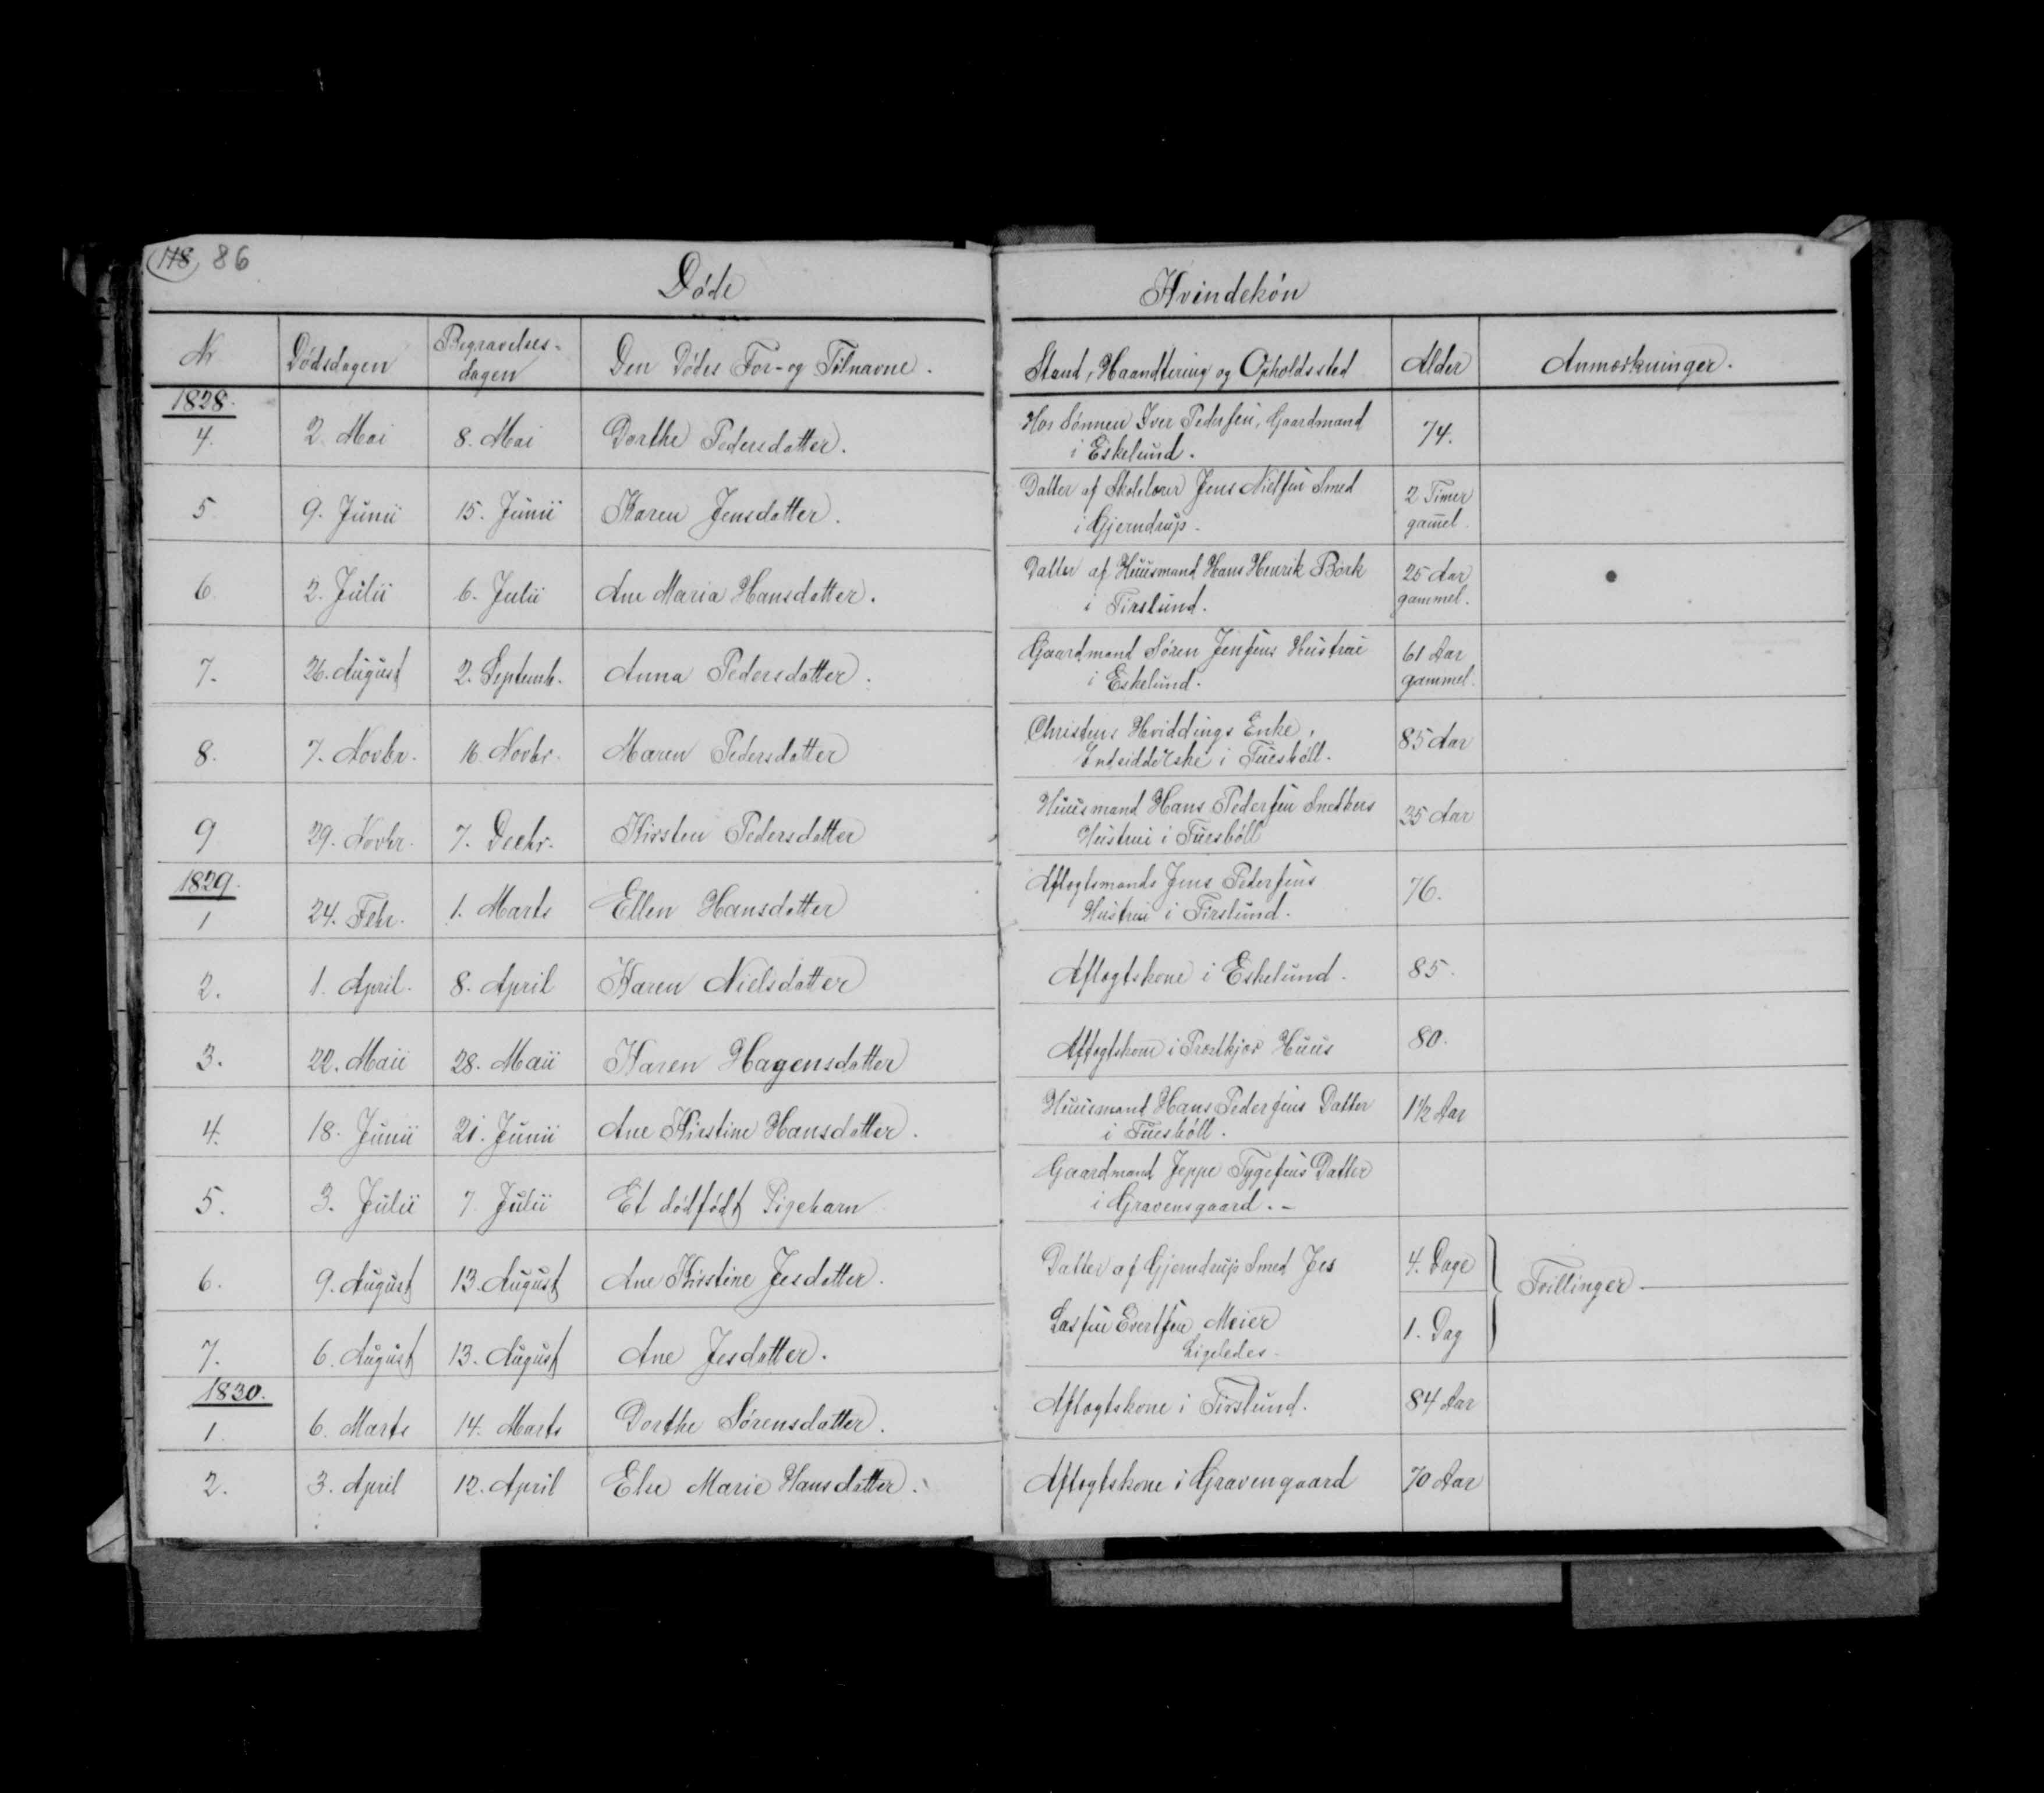 118 86
Døde
Kvindekøn
Nr
Dødsdagen
Begravelses-
dagen
Den Dødes For- og Tilnavne.
Stand, Haandtering og Opholdssted
Alder
Anmærkninger.
1828.
4. 2. Mai 8. Mai Dorthe Pedersdatter. Hos Sønnen Iver Pedersen, Gaardmand 74.
i Eskelund.
5 9. Junii 15. Junii Karen Jensdatter. Datter af Skolelærer Jens Nielsen Smed 2 Timer
i Gjerndrup. gam̄el.
6 2. Julii 6. Julii Ane Maria Hansdatter. Datter af Huusmand Hans Henrik Bork 25 Aar
i Tirslund. gammel.
7. 26. August 2. Septemb. Anna Pedersdatter. Gaardmand Søren Jensens Hustrue 61 Aar
i Eskelund. gammel.
8. 7. Novbr. 16. Novbr. Maren Pedersdatter Christens Hviddings Enke, 85 Aar
Indsidderske i Tueshöll.
9 29. Novbr. 7. Decbr. Kirsten Pedersdatter Huusmand Hans Pedersen Snedkers 35 Aar
Hustrue i Tueshöll
1829.
1 24. Febr. 1. Marts Ellen Hansdatter Aftægtsmands Jens Pedersens 76.
Hustrue i Tirslund.
2. 1. April. 8. April Karen Nielsdatter Aftægtskone i Eskelund. 85.
3. 22. Maii 28. Maii Karen Hagensdatter Aftægtskone i Præstkjær Huus 80.
4. 18. Junii 21. Junii Ane Kirstine Hansdatter. Huusmand Hans Pedersens Datter 1½ Aar
i Tueshöll.
5. 3. Julii 7 Julii Et dødfødt Pigebarn Gaardmand Jeppe Tygesens Datter
i Gravensgaard.-
6. 9. August 13. August Ane Kirstine Jesdatter. Datter af Gjerndrup Smed Jes 4. Dage Tvillinger
Lassen Evertsen Meier
7. 6. August 13. August Ane Jesdatter. Ligeledes. 1. Dag
1830.
1. 6. Marts 14. Marts Dorthe Sørensdatter. Aftægtskone i Tirslund. 84 Aar
2. 3. April 12. April Else Marie Hansdatter. Aftægtskone i Gravengaard 70 Aar